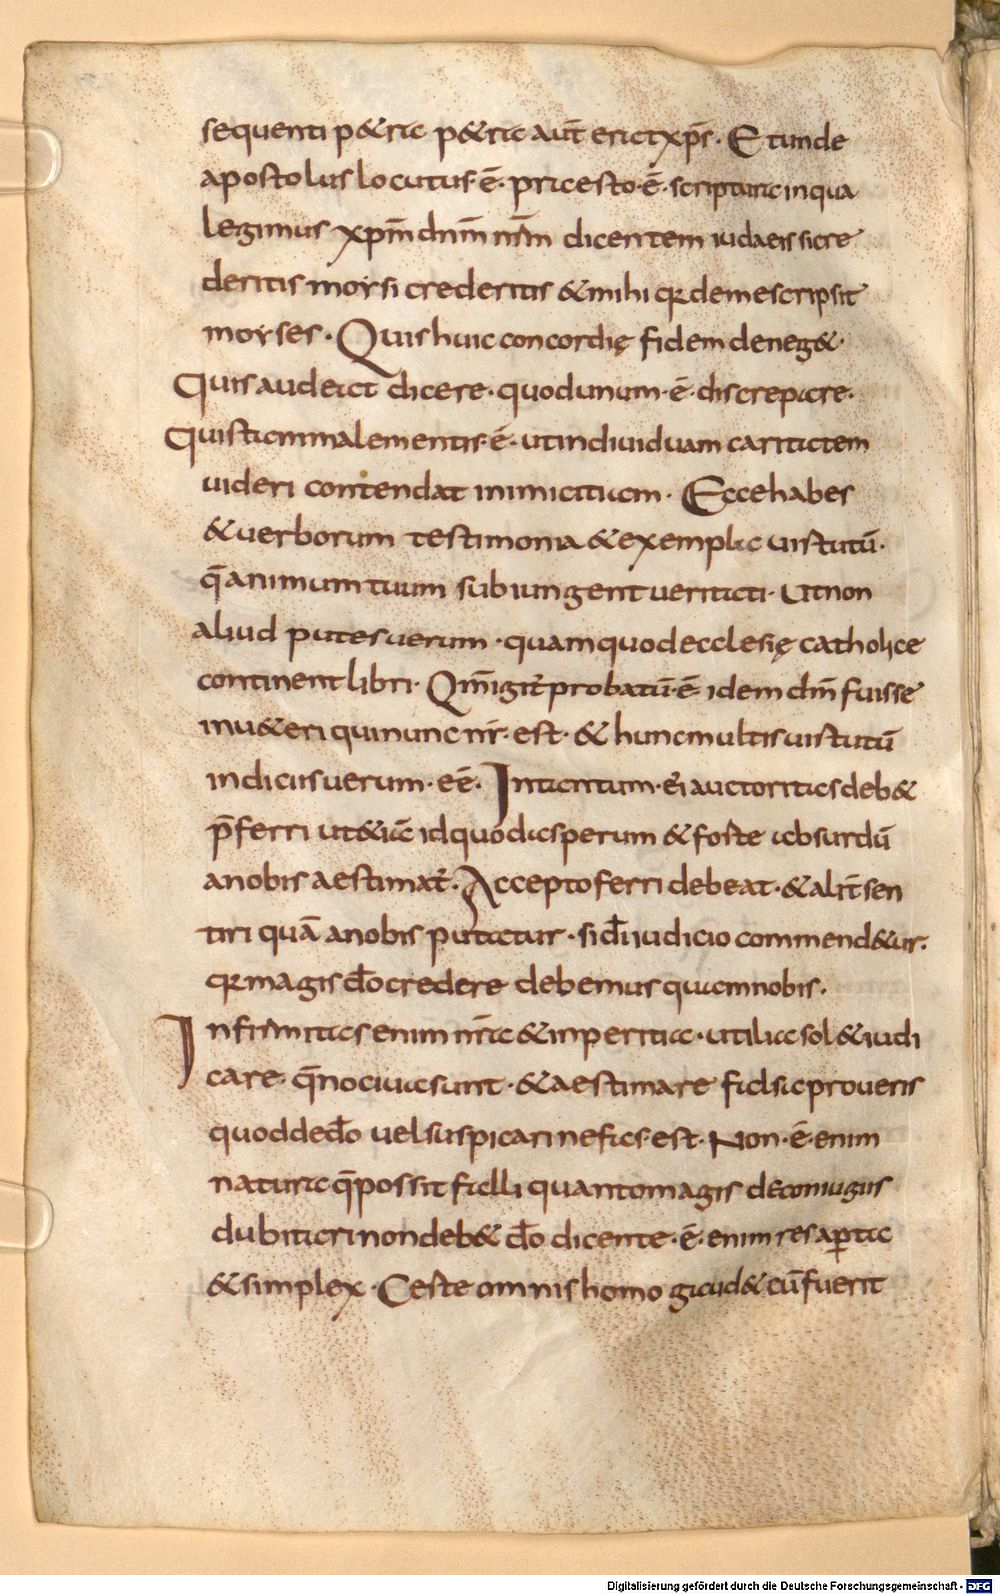 sequenti p&ra p&ra aut̄ eratxp̄s · Et unde
apostolus locutus · ē · praesto · ē · scriptura inqua
legimus xp̄m dn̄m nr̄m dicentem iudaeis si cre
deritis moysi crederitis & mihi q̄ demescripsit
moyses · Quis huic concordię fidem deneg& ·
Quis audeat dicere · quodunum · ē · discrepare ·
Quis tam malementis · ē · utindiuiduam caritatem
uideri contendat inimicitiam · Ecce habes
& uerborum testimonia & exempla uirtutū ·
q̄ animum tuum subiungent ueritati · Ut non
aliud putes uerum · quam quod ecclesię catholice
continent libri · Qm̄ igit̄ probatū · ē · idem dn̄m fuisse
inu&eri qui nunc nr̄ · est · & hunc multis uirtutū
indiciis uerum · eē · Intantum · ei auctoritas deb&
p̄ferri ut &iā id quod asperum & forte absurdū
anobis aestimat̄ · Accepto ferri debeat · & alit̄ sen
tiri quā anobis putatur · si dī iudicio commend&ur ·
q̄ magis dō credere debemus quam nobis ·
Infirmitas enim nr̄a & inperitia · utilia sol& iudi
care · q̄ nociua sunt · & aestimare falsa pro ueris
quod dedō uel suspicari nefas est · Non · ē · enim
natura q̄ possit falli quanto magis de coniugiis
dubitari non deb& dō dicente · ē · enim res ap̄ta
& simplex · Ceste omnis homo gaud& cū fuerit
Digitalisierung gefördert durch die Deutsche Forschungsgemeinschaft - DFG